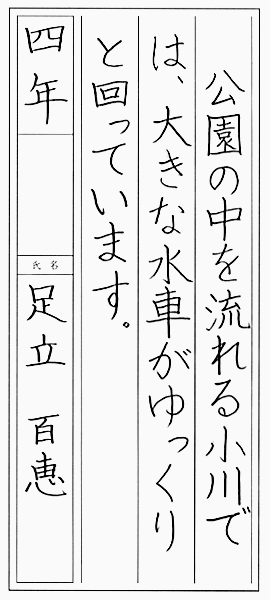 公園の中を流れる小川で
は、大きな水車がゆっくり
と回っています。
四年
氏名
足立 百恵